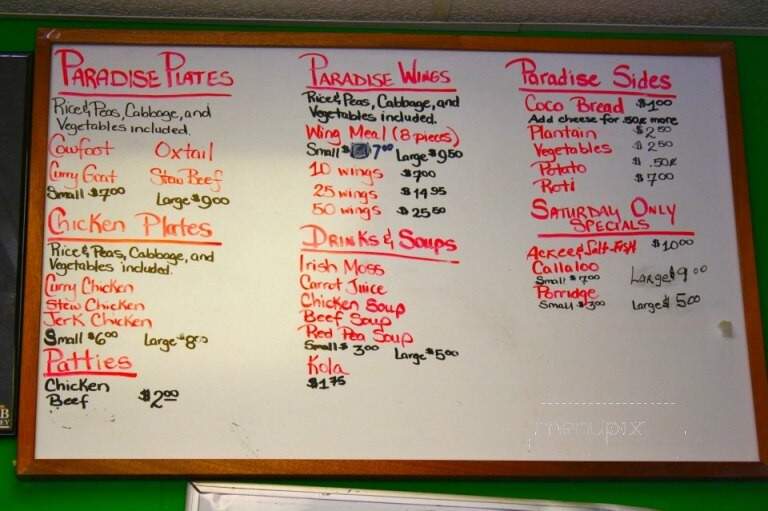 PARADISE PLATES
Rice & Peas, Cabbage, and
Vegetables included.
Cowfoot Oxtail
Curry Goat Stew Beef
Small $7.00 Large $9.00
Chicken Plates
Rice & Peas, Cabbage, and
Vegetables included.
Curry Chicken
Stew Chicken
Jerk Chicken
Small $6.00 Large $8.00
Patties
Chicken
Beef $2.00
PARADISE WINGS
Rice & Peas, Cabbage, and
Vegetables included.
Wing Meal (8-pieces)
Small $7.00 Large $9.50
10 wings $7.00
25 wings $14.95
50 wings $25.50
DRINKS & SOUPS
Irish Moss
Carrot Juice
Chicken Soup
Beef Soup
Red Pea Soup
Small $3.00 Large $5.00
Kola
$1.75
Paradise Sides
Coco Bread $1.00
Add cheese for .50¢ more
Plantain $2.50
Vegetables $2.50
Potato $.50¢
Roti $7.00
SATURDAY ONLY
SPECIALS
Ackee & Salt-Fish $10.00
Callaloo
Small $7.00 Large $9.00
Porridge
Small $3.00 Large $5.00
menupix